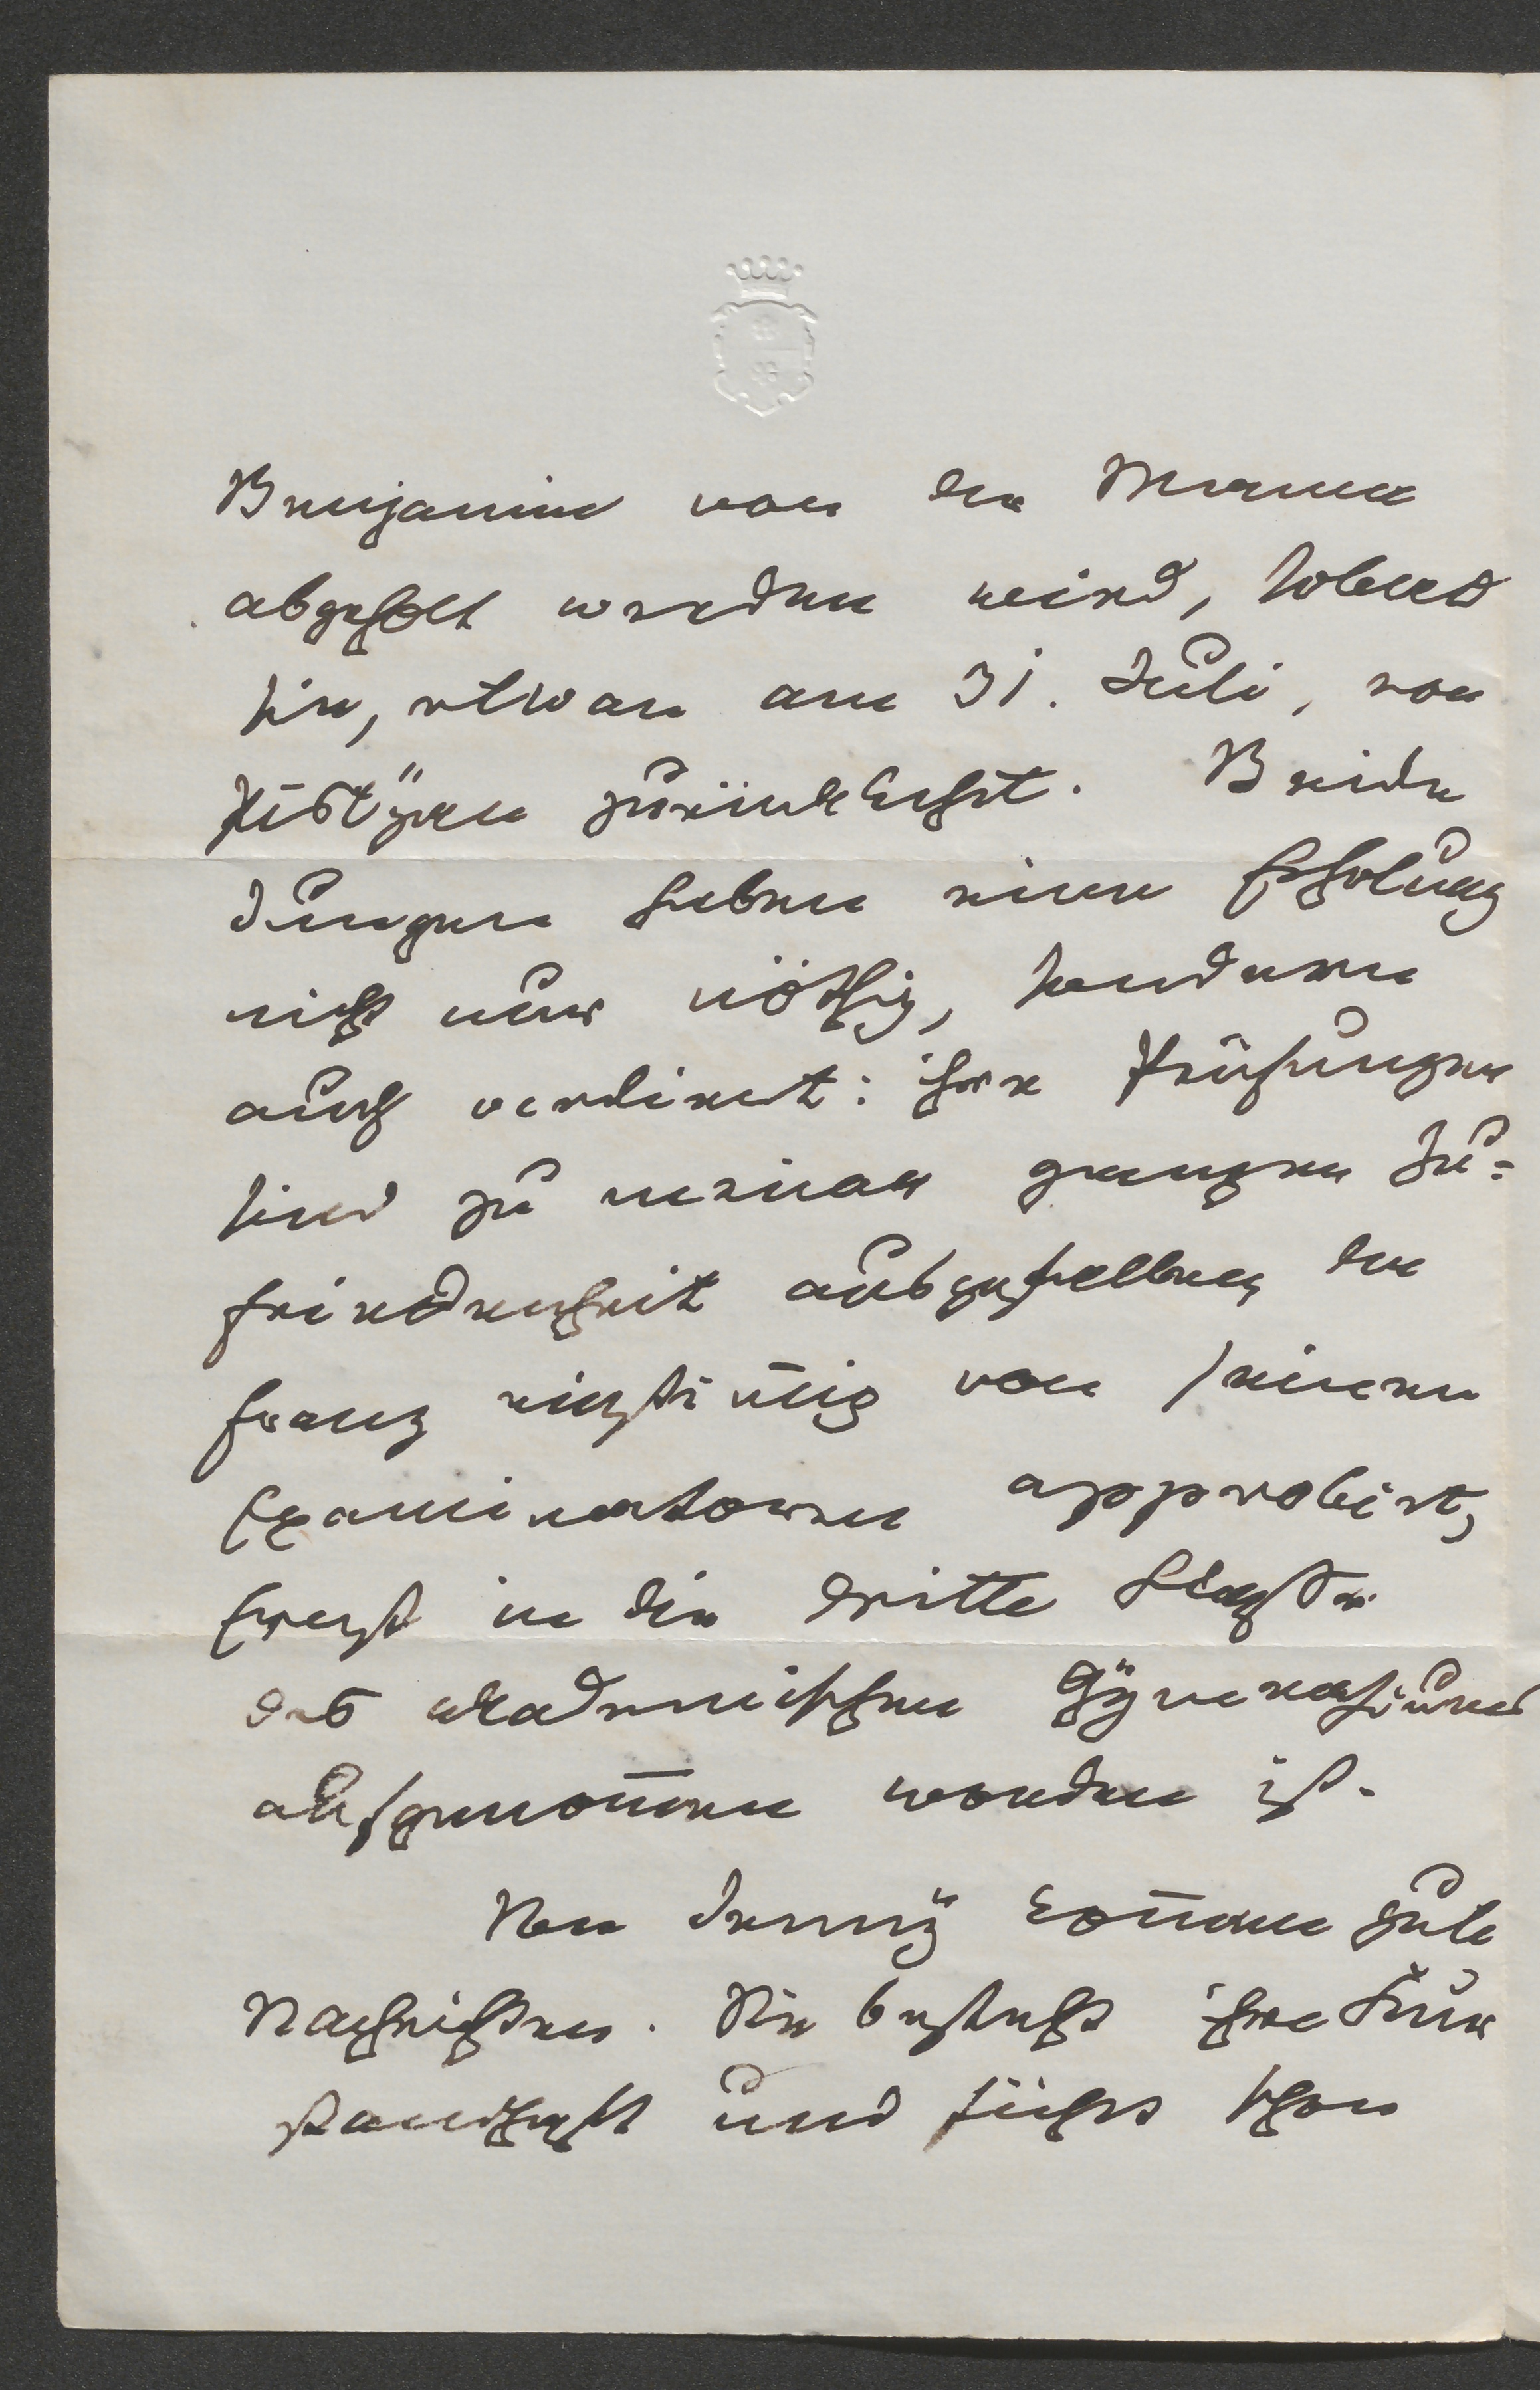 Benjamin von der Mama
abgeholt werden wird, sobald
sie, etwa am 31. Juli, von
Pistyan zurückkehrt. Beide
Jungen haben eine Erholung
nicht nur nöthig, sondern
auch verdient: ihre Prüfungen
sind zu meiner ganzen Zu=
friedenheit ausgefallen, da
Franz einstim̅ig von seinen
Examinatoren approbirt,
Ernst in die dritte Klasse
des akademischen Gymnasiums
aufgenom̅en worden ist.
Von Jenny kom̅en gute
Nachrichten. Sie besteht ihre Kur
standhaft und fühlt schon